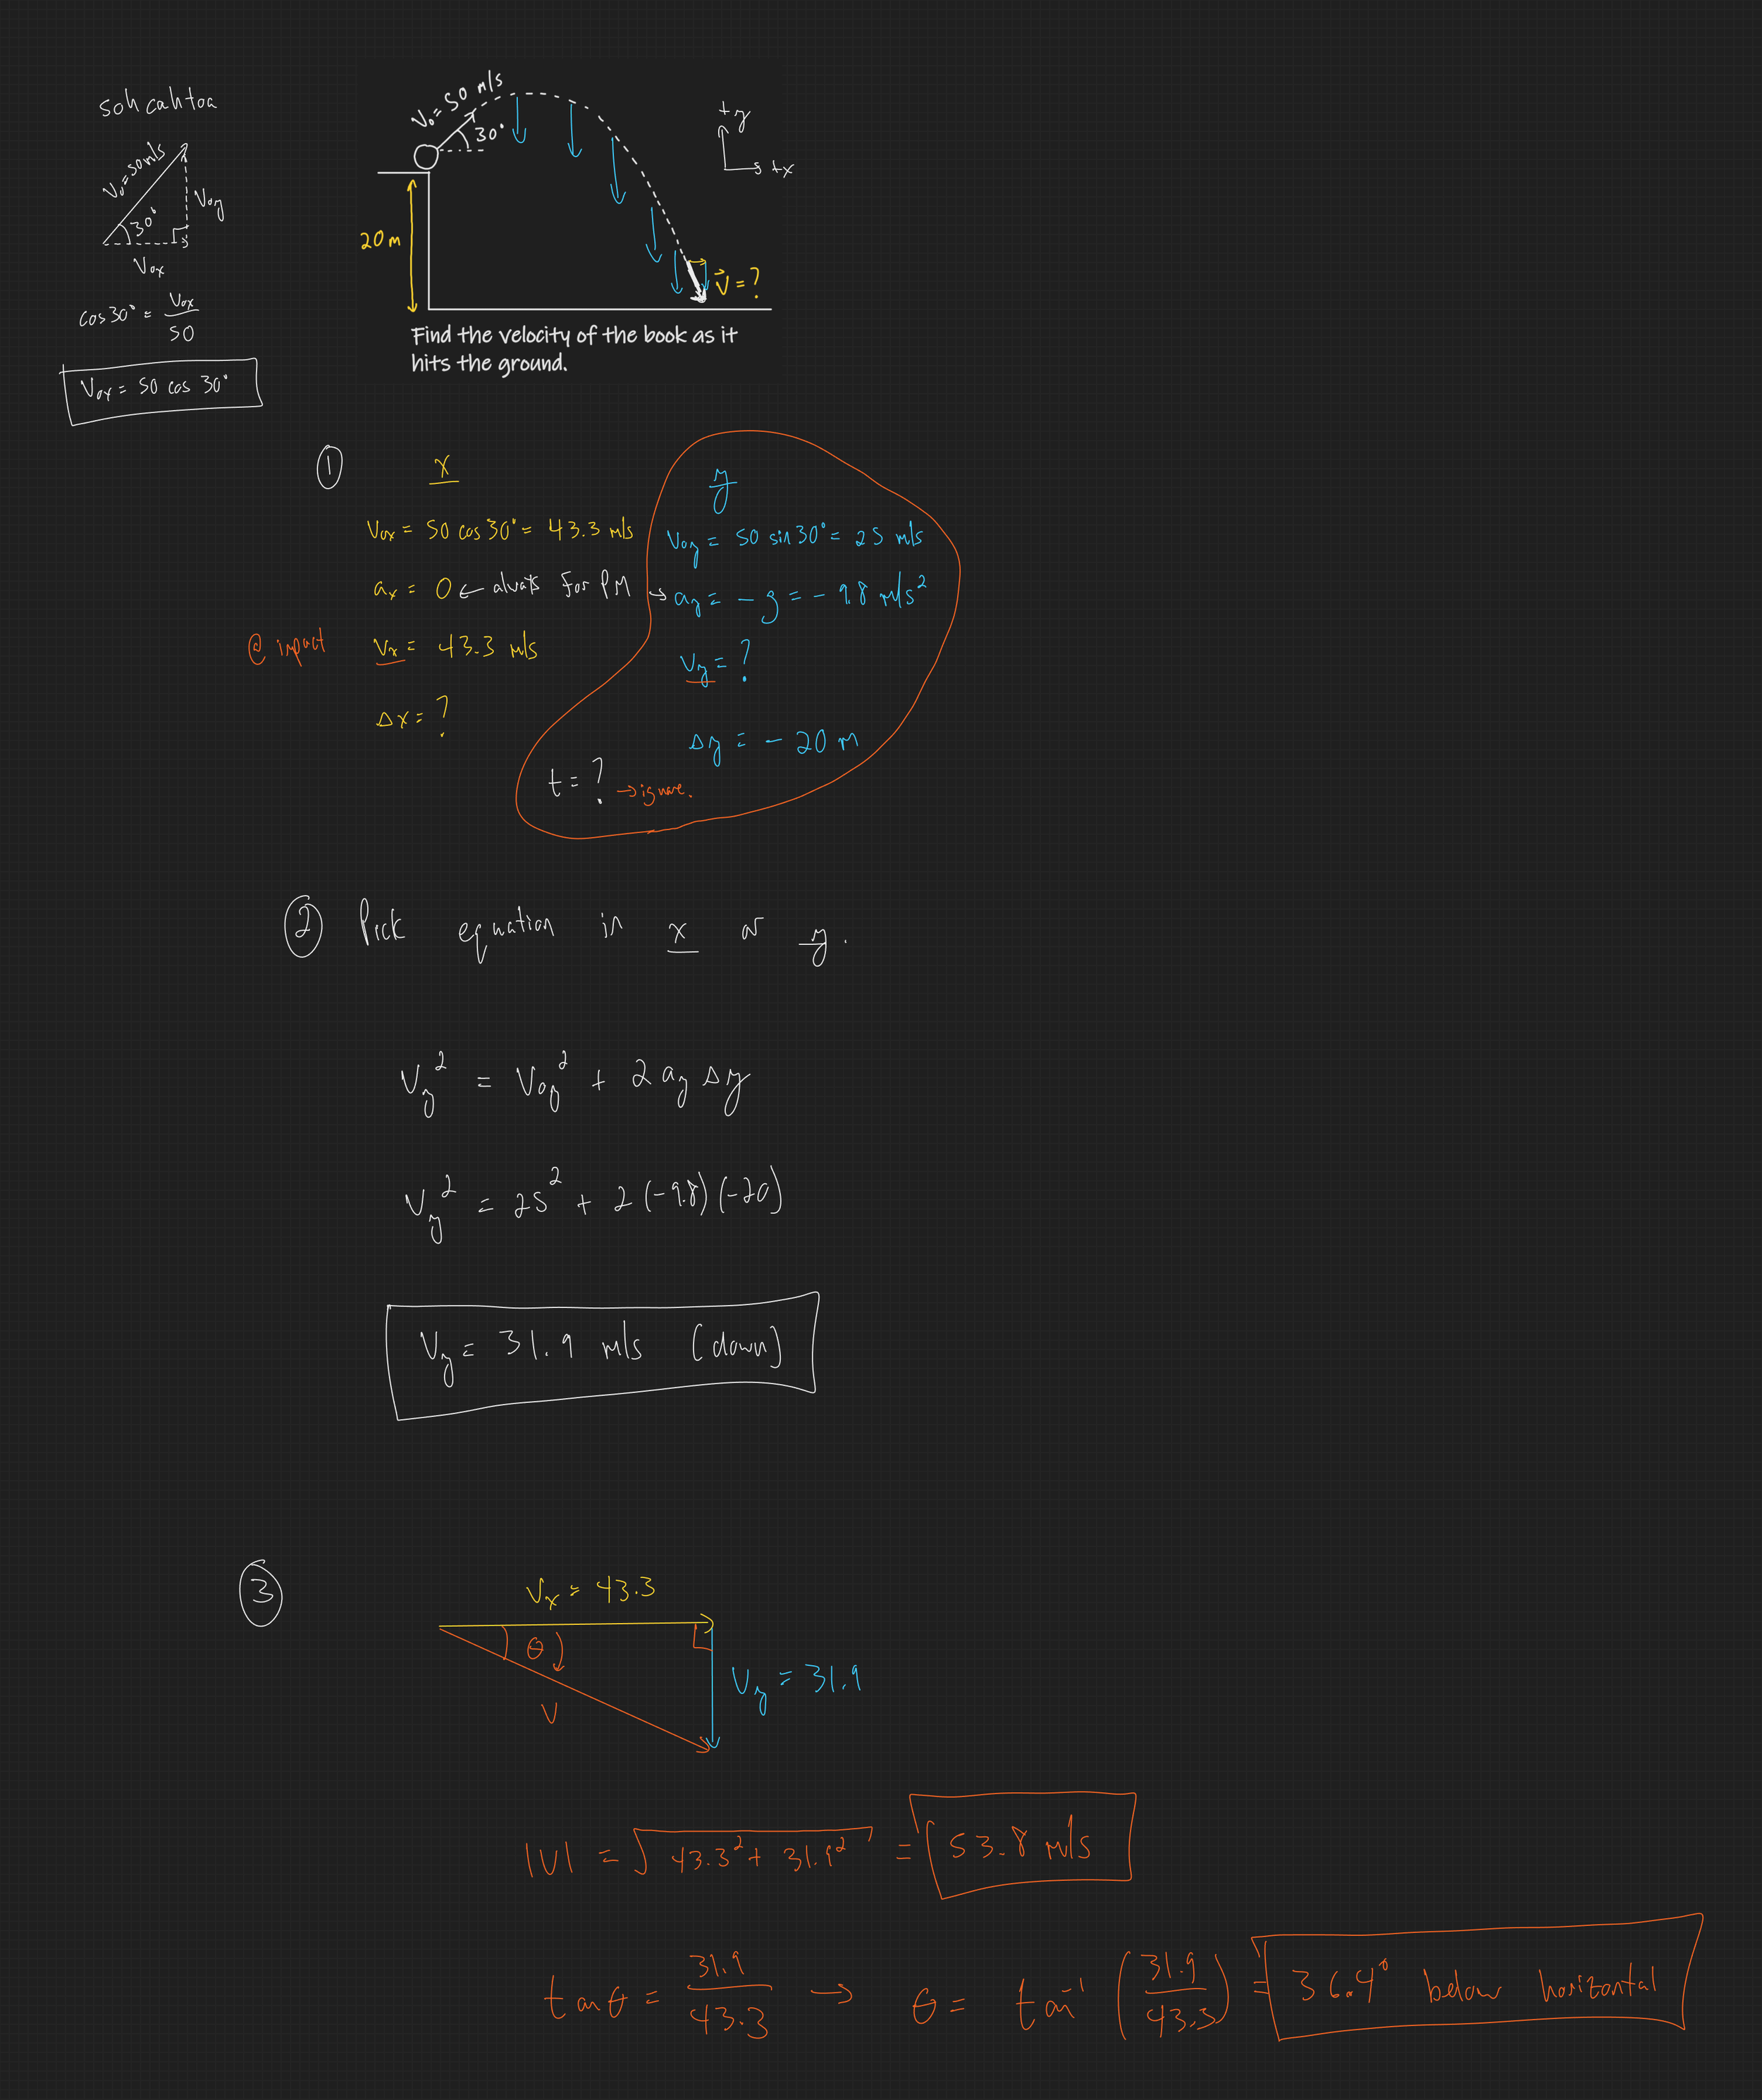 soh cah toa
V₀ = 50 m/s
30°
V₀y
V₀x
cos 30° = V₀x / 50
V₀x = 50 cos 30°
V₀ = 50 m/s
30°
+y
+x
20 m
V⃗ = ?
Find the velocity of the book as it
hits the ground.
① x
V₀x = 50 cos 30° = 43.3 m/s
aₓ = 0 ← always for PM →
@ impact Vₓ = 43.3 m/s
Δx = ?
y
V₀y = 50 sin 30° = 25 m/s
ay = - g = - 9.8 m/s²
Vy = ?
Δy = - 20 m
t = ? → ignore.
② Pick equation in x or y.
Vy² = V₀y² + 2 ay Δy
Vy² = 25² + 2 (-9.8) (-20)
Vy = 31.9 m/s (down)
③ Vₓ = 43.3
θ
V
Vy = 31.9
|V| = √(43.3² + 31.9²) = 53.8 m/s
tan θ = 31.9 / 43.3 → θ = tan⁻¹ (31.9 / 43.3) = 36.4° below horizontal